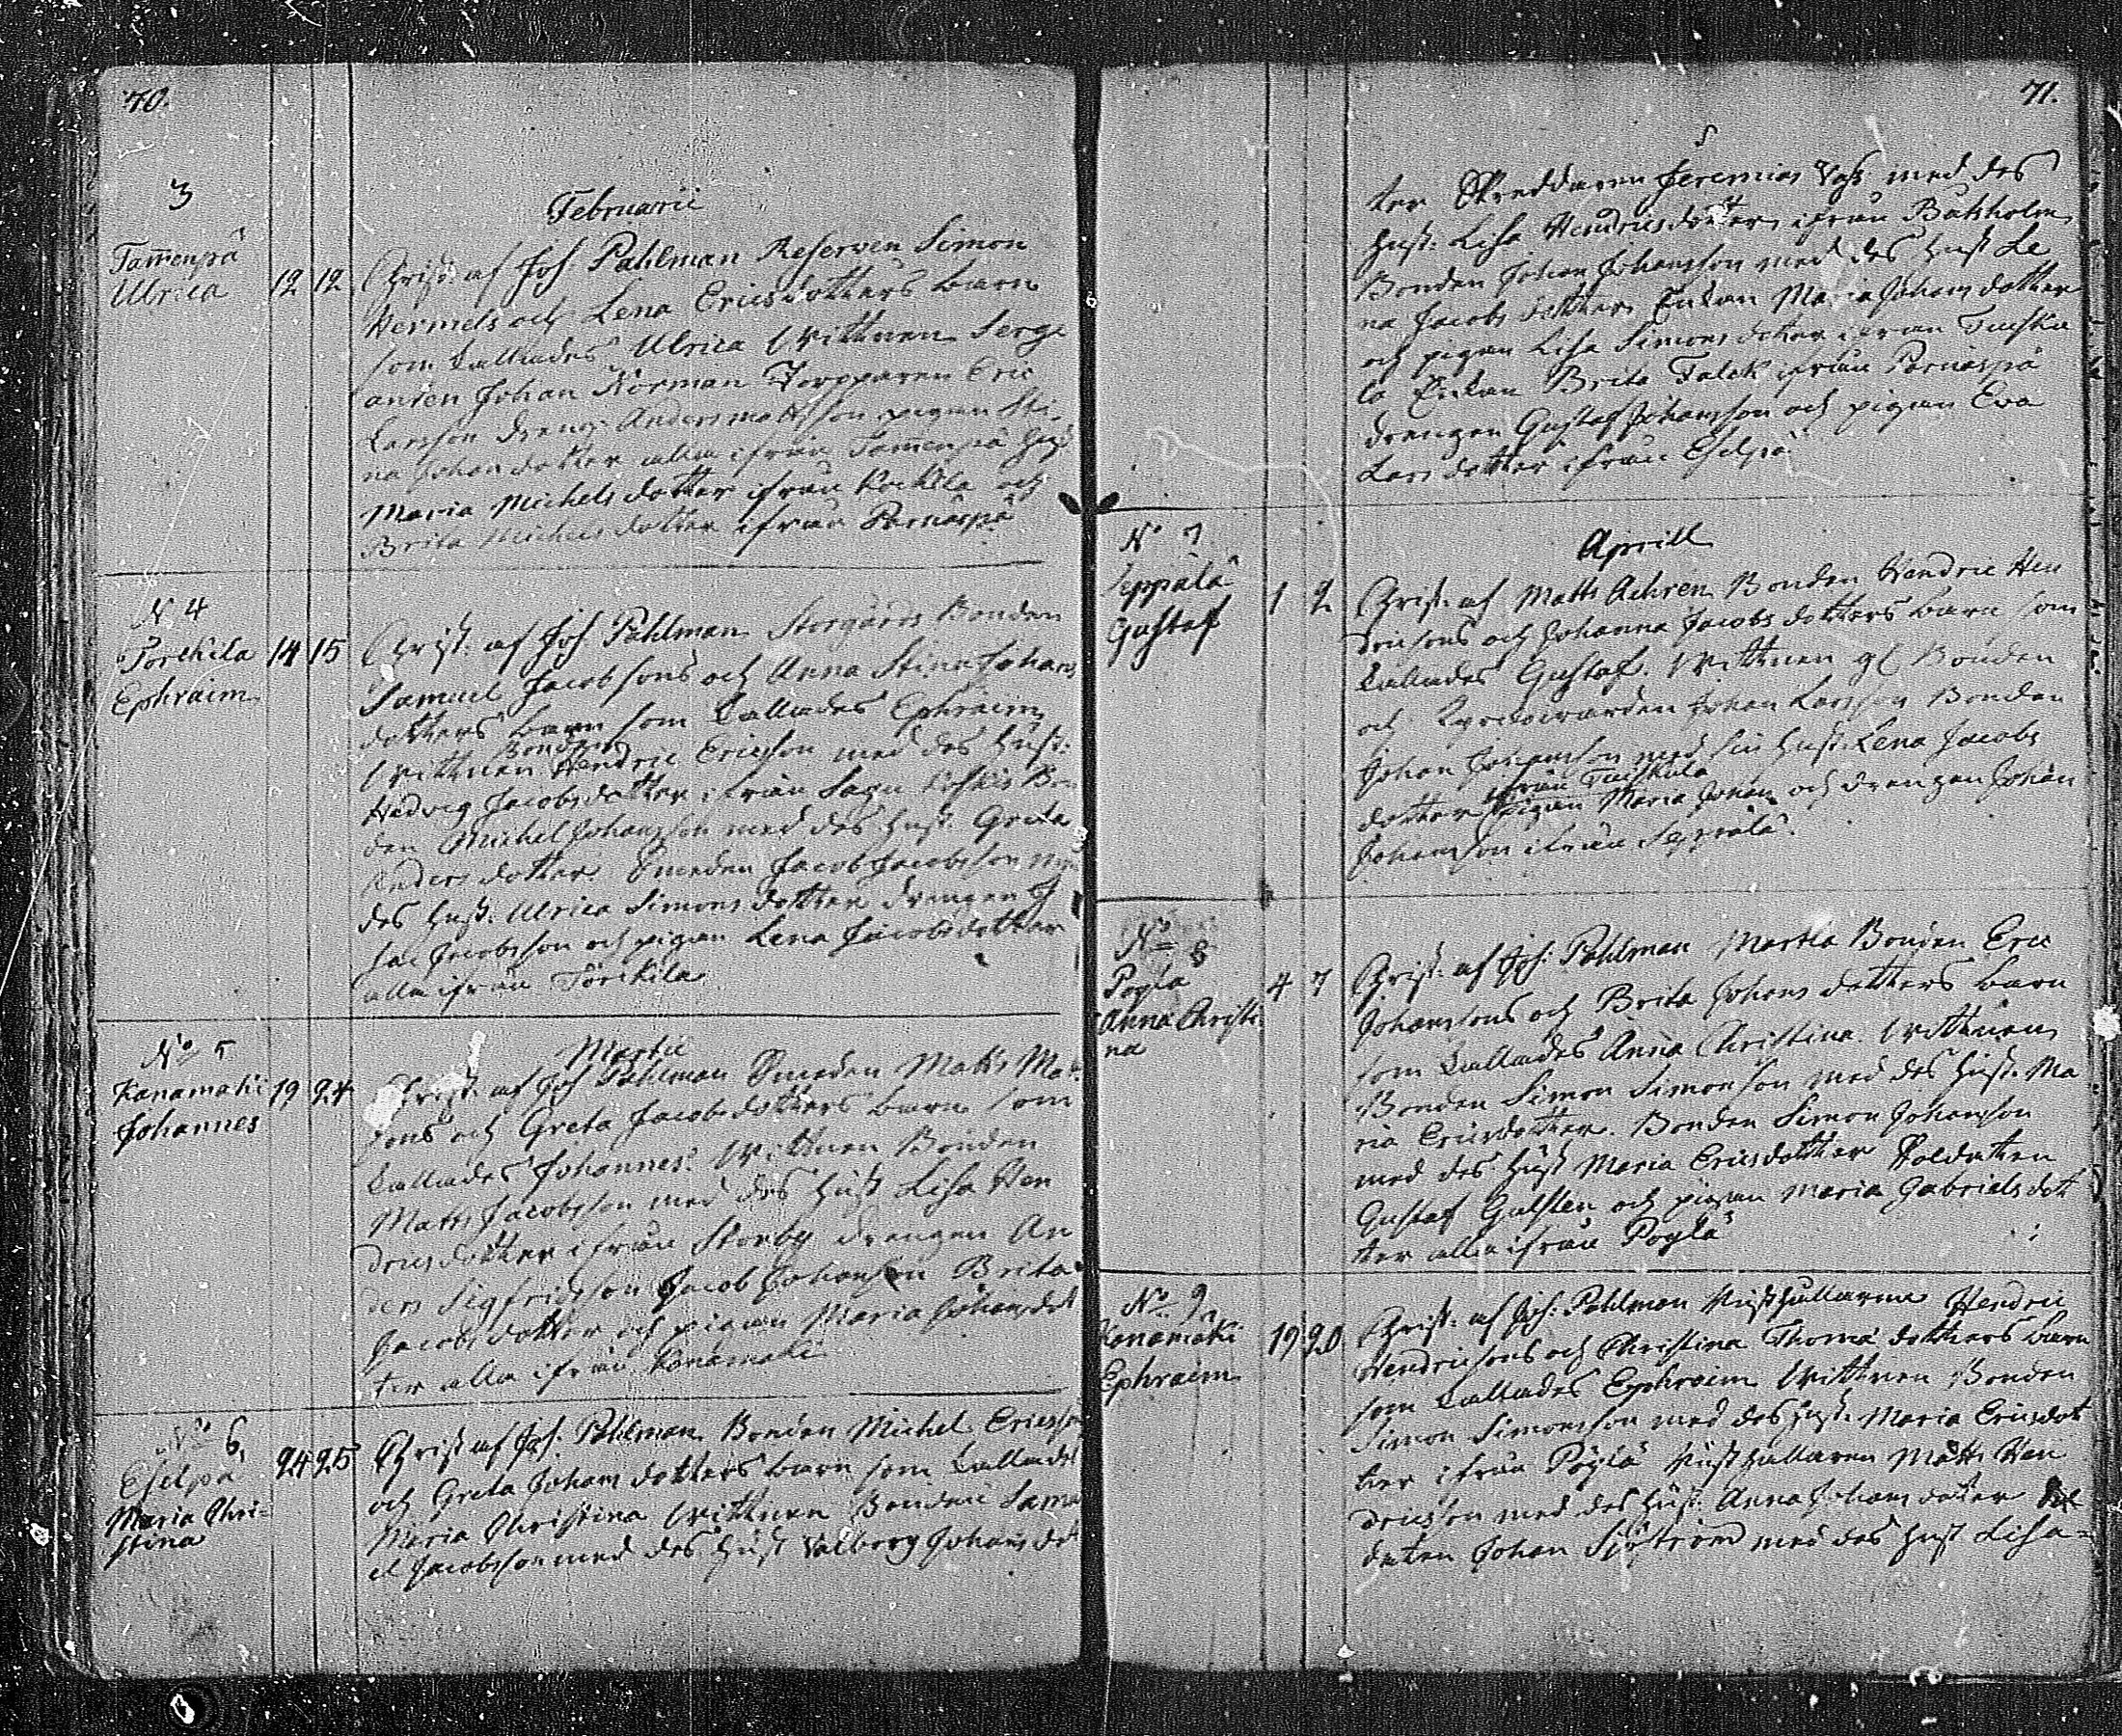 70.
3
Februarii
Tam̄enpä
Ulrica
12 12
Christ: af Joh Pahlman Reserven Simon
Hermels och Lena Ericsdotters barn
som kallades Ulrica Wittnen Serge
anten Johan Norman Torpparen Eric
Larsson Drengen Anders Mattsson pigan Sti
na Johansdotter alla ifrån Tam̄enpä
Maria Michelsdotter ifrån Kockila och
Brita Michelsdotter ifrån Parnaspä
N 4
Torckila
Ephraim
14 15
Christ: af Joh Pahlman Storgårds Bonden
Samuel Jacobsons och Anna Stina Johans
dotters barn som kallades Ephraim
Bonden
Wittnen Hendric Ericsson med des Hust:
Hedvig Jacobsdotter ifrån Sagu Koskis Bon
den Michel Johansson med des Hust Greta
Andersdotter Smeden Jacob Jacobsson med
des Hust: Ulrica Simonsdotter drengen I
sac Jacobsson och pigan Lena Jacobsdotter
alla ifrån Torckila
No 5
Martii
Kanamaki
Johannes
19 24
Christ: af Joh Pahlman Smeden Matts Mat
sons och Greta Jacobsdotters barn som
kallades Johannes Wittnen Bonden
Matts Jacobsson med des Hust Lisa Hen
dricsdotter ifrån Storby drengen An
ders Sigfridsson Jacob Johansson Brita
Jacobsdotter och pigan Maria Johansdot
ter alla ifrån Kanamaki
No 6
Eselpä
Maria Chri-
stina
24 25
Christ af Joh: Pahlman Bonden Michel Ericsso
och Greta Johansdotters barn som kallades
Maria Christina Wittnen Bonden Samu
el Jacobsson med des Hust Valborg Johansdot
71.
ter Skreddaren Jeremias Vass med des
Hust: Lisa Hendricsdotter ifrån Bukholm
Bonden Johan Johansson med des Hust Le
na Jacobsdotter Enkan Maria Johansdotter
och pigan Lisa Simonsdotter ifrån Tuisku
la Enkan Brita Falck ifrån Parnaspä
drengen Gustaf Johansson och pigan Eva
Larsdotter ifrån Eselpä
No 7
Aprill
Seppälä
Gustaf
1 2
Christ: af Matts Achren Bonden Hendric Hen
dricsons och Johanna Jacobsdotters barn som
kallades Gustaf. Wittnen gl Bonden
och Kyrckowärden Johan Larsson Bonden
Johan Johansson med sin Hust: Lena Jacobs
ifrån Tuiskula
dotter pigan Maria Johan och drengen Johan
Johansson ifrån Seppälä.
No 8
Poylä
Anna Christi
na
4 7
Christ: af Joh: Pahlman Martla Bonden Eric
Johanssons och Brita Johansdotters barn
som kallades Anna Christina Wittnen
Bonden Simon Simonson med des Hust: Ma
ria Ericsdotter. Bonden Simon Johansson
med des Hust Maria Ericsdotter Soldaten
Gustaf Gulsten och pigan Maria Gabrielsdot
ter alla ifrån Poylä
No 9
Kanamaki
Ephraim
19 20
Christ: af Joh: Pahlman Rusthållarne Hendric
Hendricsons och Christina Thomädotters barn
som kallades Ephraim Wittnen Bonden
Simon Simonsson med des Hust: Maria Ericsdot
ter ifrån Poylä Rusthållaren Matts Hen
dricsson med des Hust: Anna Johansdotter Sol
daten Johan Sjöström med des Hust Lisa